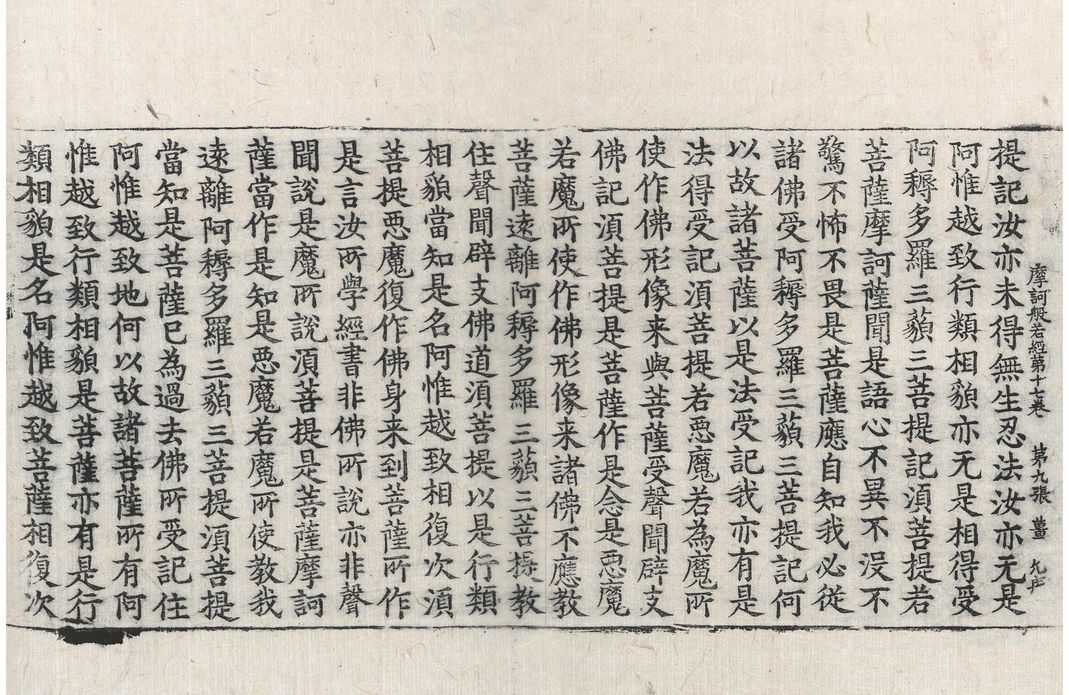 摩訶般若經第十七卷 第九張 薑
提記汝亦未得無生忍法汝亦无是
阿惟越致行類相貌亦无是相得受
阿耨多羅三藐三菩提記湏菩提若
菩薩摩訶薩聞是語心不異不没不
驚不怖不畏是菩薩應自知我必従
諸佛受阿耨多羅三藐三菩提記何
以故諸菩薩以是法受記我亦有是
法得受記湏菩提若惡魔若為魔所
使作佛形像来與菩薩受聲聞辟支
佛記湏菩提是菩薩作是念是惡魔
若魔所使作佛形像来諸佛不應教
菩薩遠離阿耨多羅三藐三菩提教
住聲聞辟支佛道湏菩提以是行類
相貌當知是名阿惟越致相復次湏
菩提惡魔復作佛身来到菩薩所作
是言汝所學經書非佛所說亦非聲
聞說是魔所說湏菩提是菩薩摩訶
薩當作是知是惡魔若魔所使教我
遠離阿耨多羅三藐三菩提湏菩提
當知是菩薩已為過去佛所受記住
阿惟越致地何以故諸菩薩所有阿
惟越致行類相貌是菩薩亦有是行
類相貌是名阿惟越致菩薩相復次